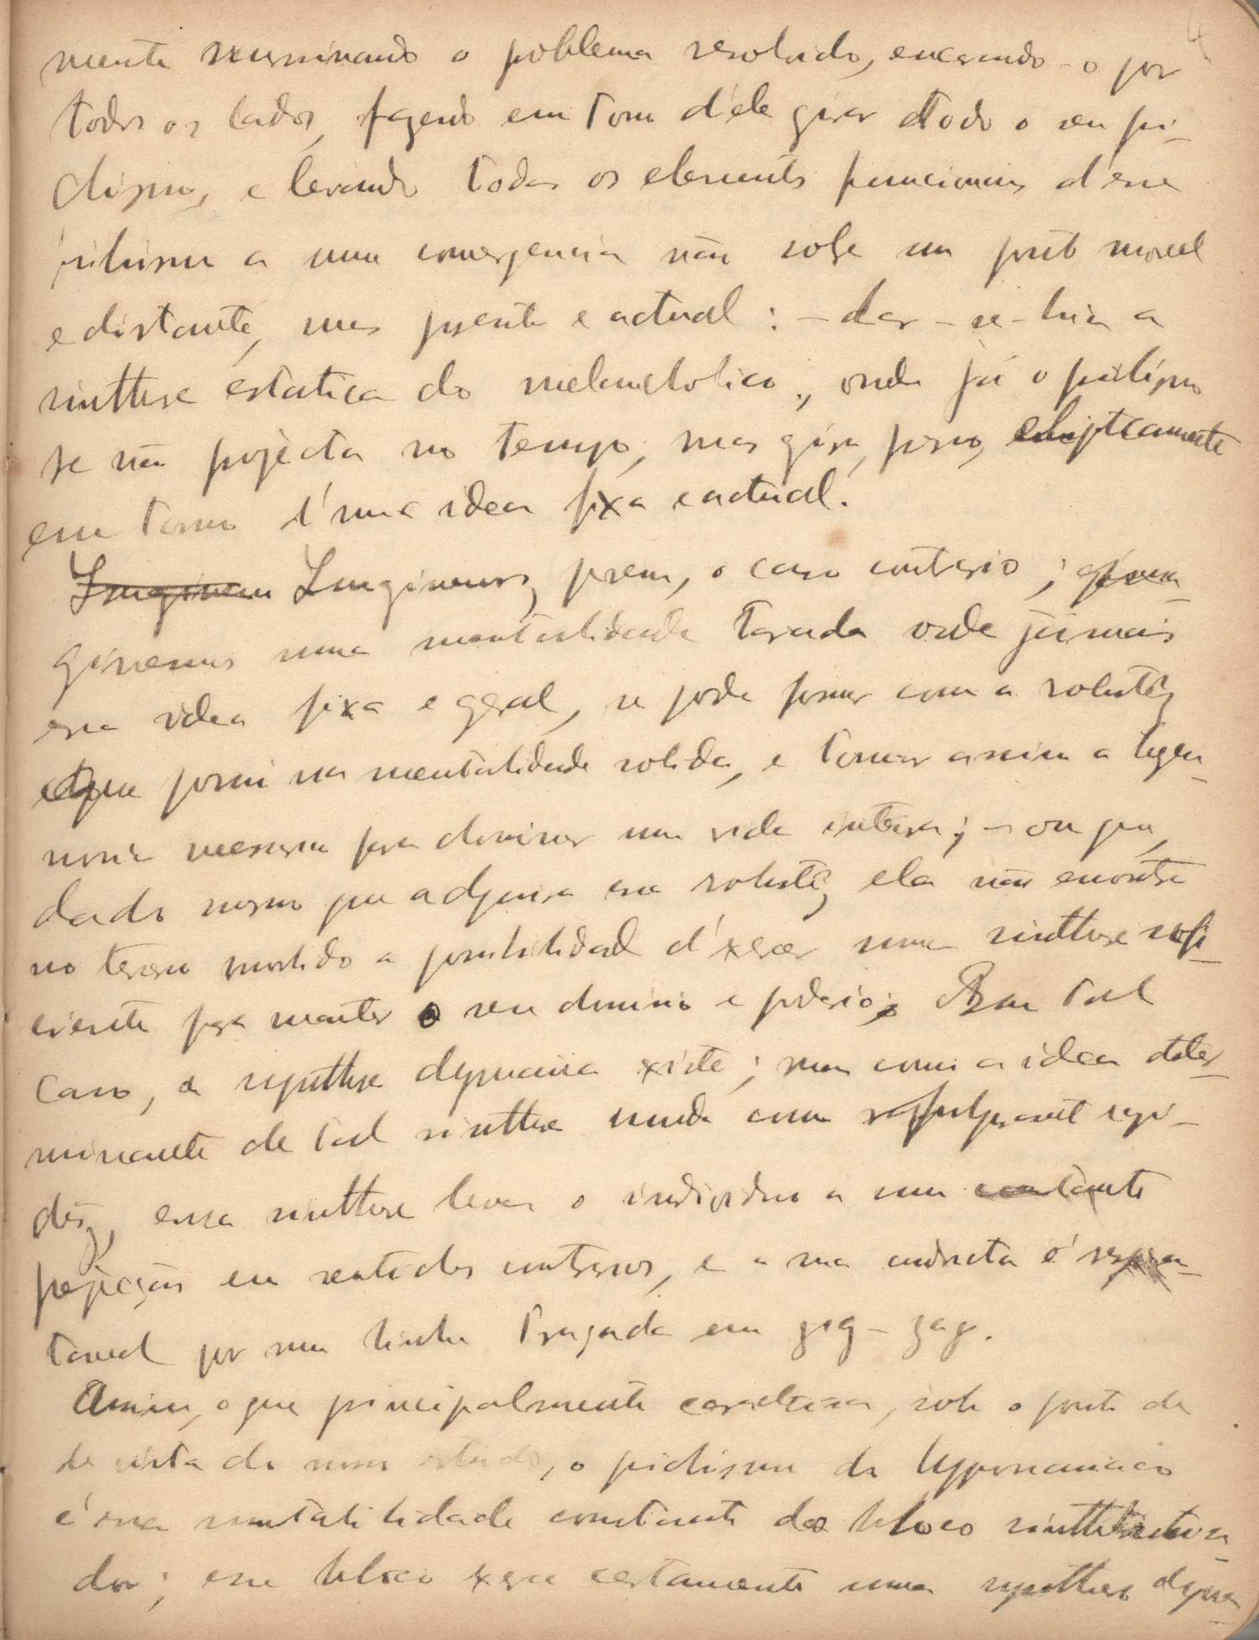 mente ruminando o problema resolvido, encarando-o por
todos os lados, fazendo em torno d'ele girar todo o seu psi-
chismo, e levando todos os elementos funcionaes d'esse
psichismo a uma convergencia não sobre um ponto movel
e distante, mas presente e actual: – dar-se-hia a
sinthese estatica do melancholico, onde já o psichismo
se não projecta no tempo, mas gira, preso, elipticamente
em torno d'uma idea fixa e actual.
Imaginemos, porem, o caso contrario;
ginemos uma mentalidade tarada onde jámais
essa idea fixa e geral, se pode formar com a robustêz
que possui na mentalidade solida, e tomar assim a hegem-
nonia necessaria para dominar uma vida inteira; – ou que,
dado mesmo que adquira essa robustêz, ela não encontra
no terreno morbido a possibilidade d'exercer uma sinthese sufi-
ciente para manter o seu dominio e poderio; Em tal
caso, a synthese dynamica existe; mas como a idea deter-
minante de tal sinthese muda com rapi-
dêz, essa sinthese leva o individuo a uma constante
projecção em sentidos contrarios, e a sua conducta é represen-
tavel por uma linha traçada em zig-zag.
Assim, o que principalmente caracterisa, sob o ponto de
de vista do nosso estudo, o psichismo do hypomaniaco
é essa mutabilidade constante do bloco sinthetisa
dor; esse bloco exerce certamente uma synthese dyna-